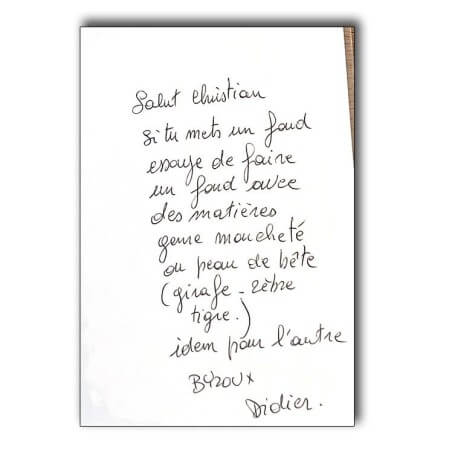 Salut Christian
si tu mets un fond
essaye de faire
un fond avec
des matières
genre moucheté
ou peau de bête
(girafe - zèbre
tigre.)
idem pour l'autre
BYZOUX
Didier.